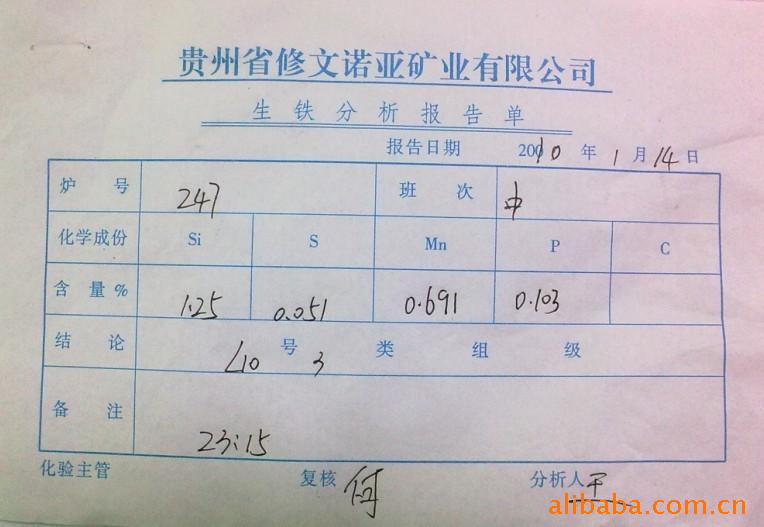 贵州省修文诺亚矿业有限公司
生铁分析报告单
报告日期 2010年1月14日
炉号 247 班次 中
化学成份 Si S Mn P C
含量% 1.25 0.051 0.691 0.103
结论 L10号 3类 组 级
备注 23:15
化验主管 复核 何 分析人 王
alibaba.com.cn